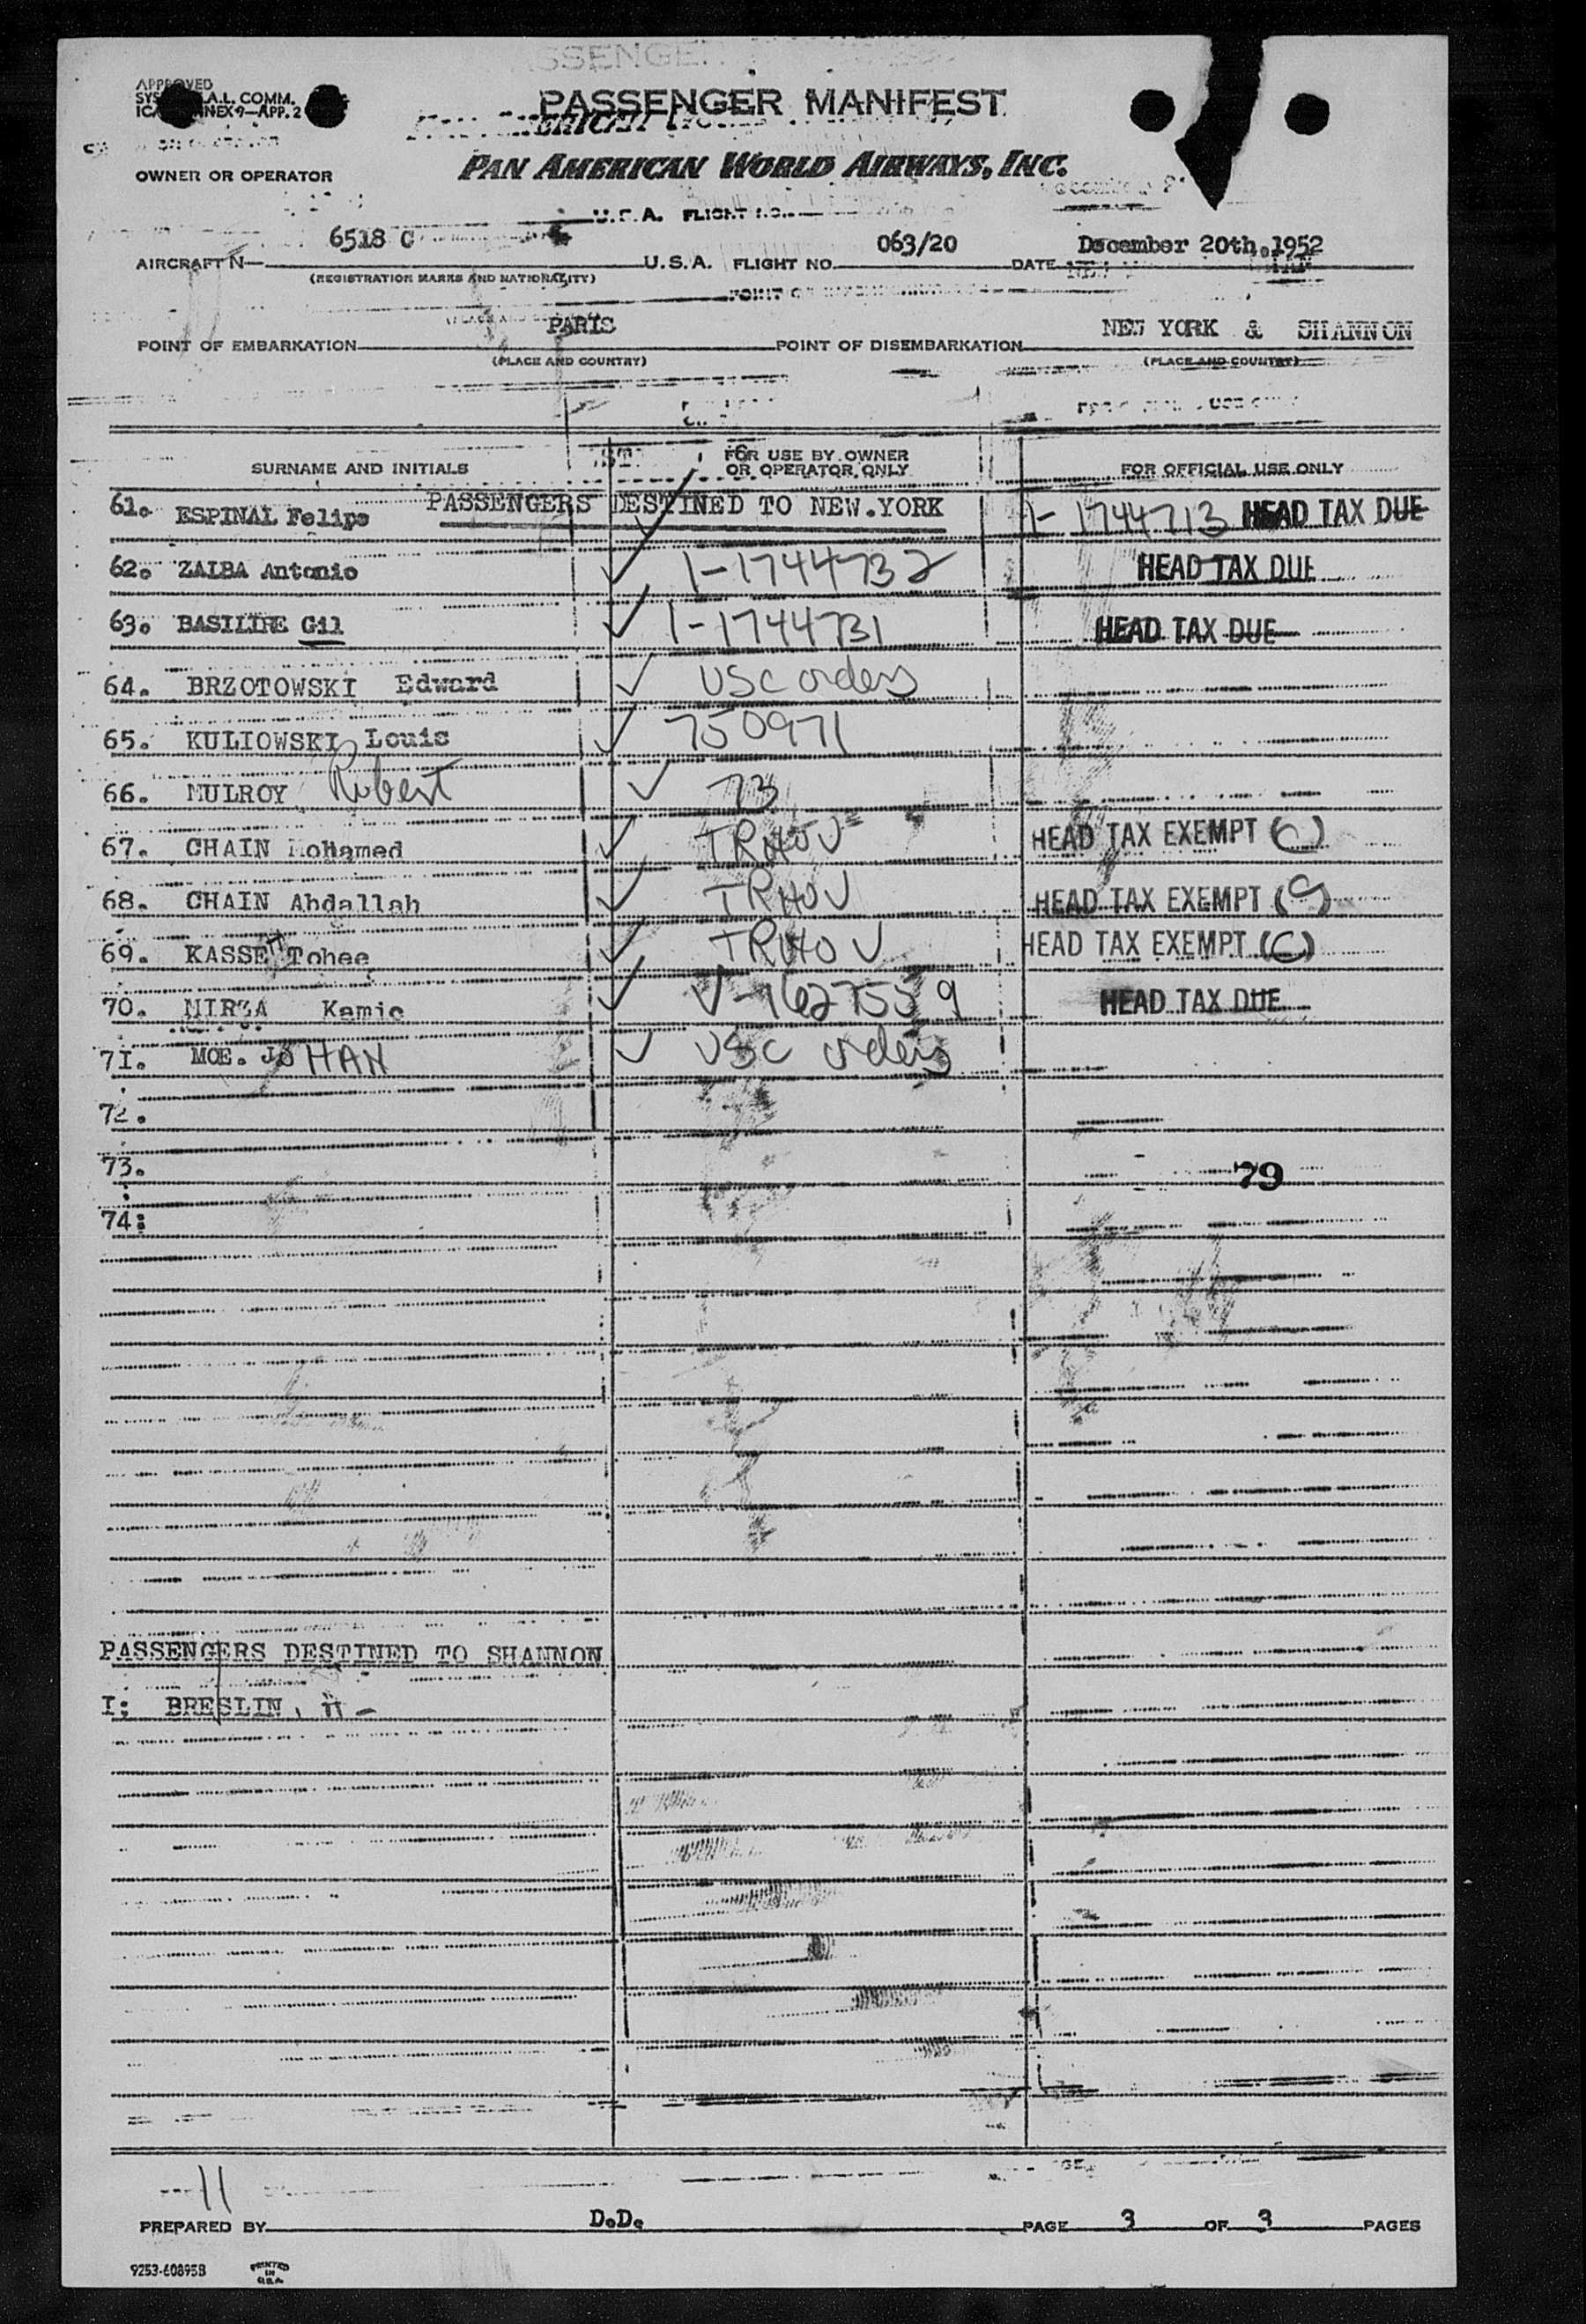 PASSENGER MANIFEST
PAN AMERICAN WORLD AIRWAYS, INC.
OWNER OR OPERATOR
AIRCRAFT N 6518 C U.S.A. FLIGHT NO. 063/20 DATE December 20th, 1952
(REGISTRATION MARKS AND NATIONALITY)
POINT OF EMBARKATION PARIS POINT OF DISEMBARKATION NEW YORK & SHANNON
(PLACE AND COUNTRY) (PLACE AND COUNTRY)
SURNAME AND INITIALS FOR USE BY OWNER OR OPERATOR ONLY FOR OFFICIAL USE ONLY
PASSENGERS DESTINED TO NEW.YORK
61. ESPINAL Felipe ✓ I-1744713 HEAD TAX DUE
62. ZALBA Antonio ✓ I-1744732 HEAD TAX DUE
63. BASILIRE Gil ✓ I-1744731 HEAD TAX DUE
64. BRZOTOWSKI Edward ✓ USC orders
65. KULIOWSKI Louis ✓ 750971
66. MULROY Robert ✓ 73
67. CHAIN Mohamed ✓ HEAD TAX EXEMPT (C)
68. CHAIN Abdallah ✓ HEAD TAX EXEMPT (C)
69. KASSE Tohee ✓ HEAD TAX EXEMPT (C)
70. MIRZA Kamic ✓ V-1627559 HEAD TAX DUE
71. MOE. JOHAN ✓ USC orders
72.
73.
79
74:
PASSENGERS DESTINED TO SHANNON
I: BRESLIN,
11
PREPARED BY D.D. PAGE 3 OF 3 PAGES
9253-60895B PRINTED IN U.S.A.